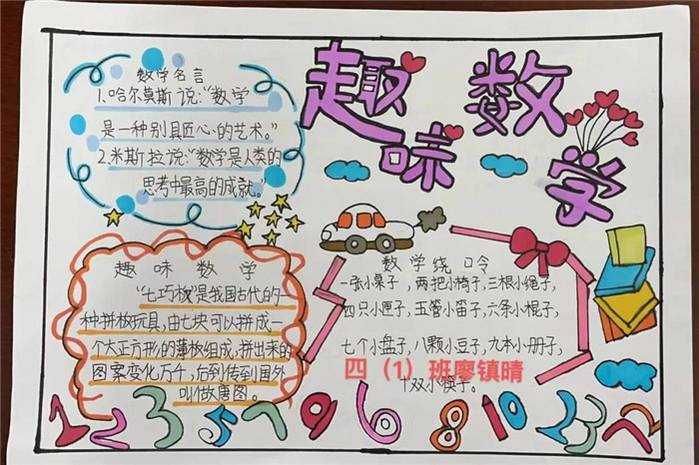 趣味数学
数学名言
1.哈尔莫斯说:“数学
是一种别具匠心的艺术。”
2.米斯拉说:“数学是人类的
思考中最高的成就。”
趣味数学
“七巧板”是我国古代的一
种拼板玩具,由七块可以拼成一
个大正方形的薄板组成,拼出来的
图案变化万千,后到传到国外
叫做唐图。
数学绕口令
一张小桌子,两把小椅子,三根小绳子,
四只小匣子,五管小笛子,六条小棍子,
七个小盘子,八颗小豆子,九本小册子,
四(1)班廖镇晴
十双小筷子。
1 2 3 5 7 9 6 8 10 3 2 3 2